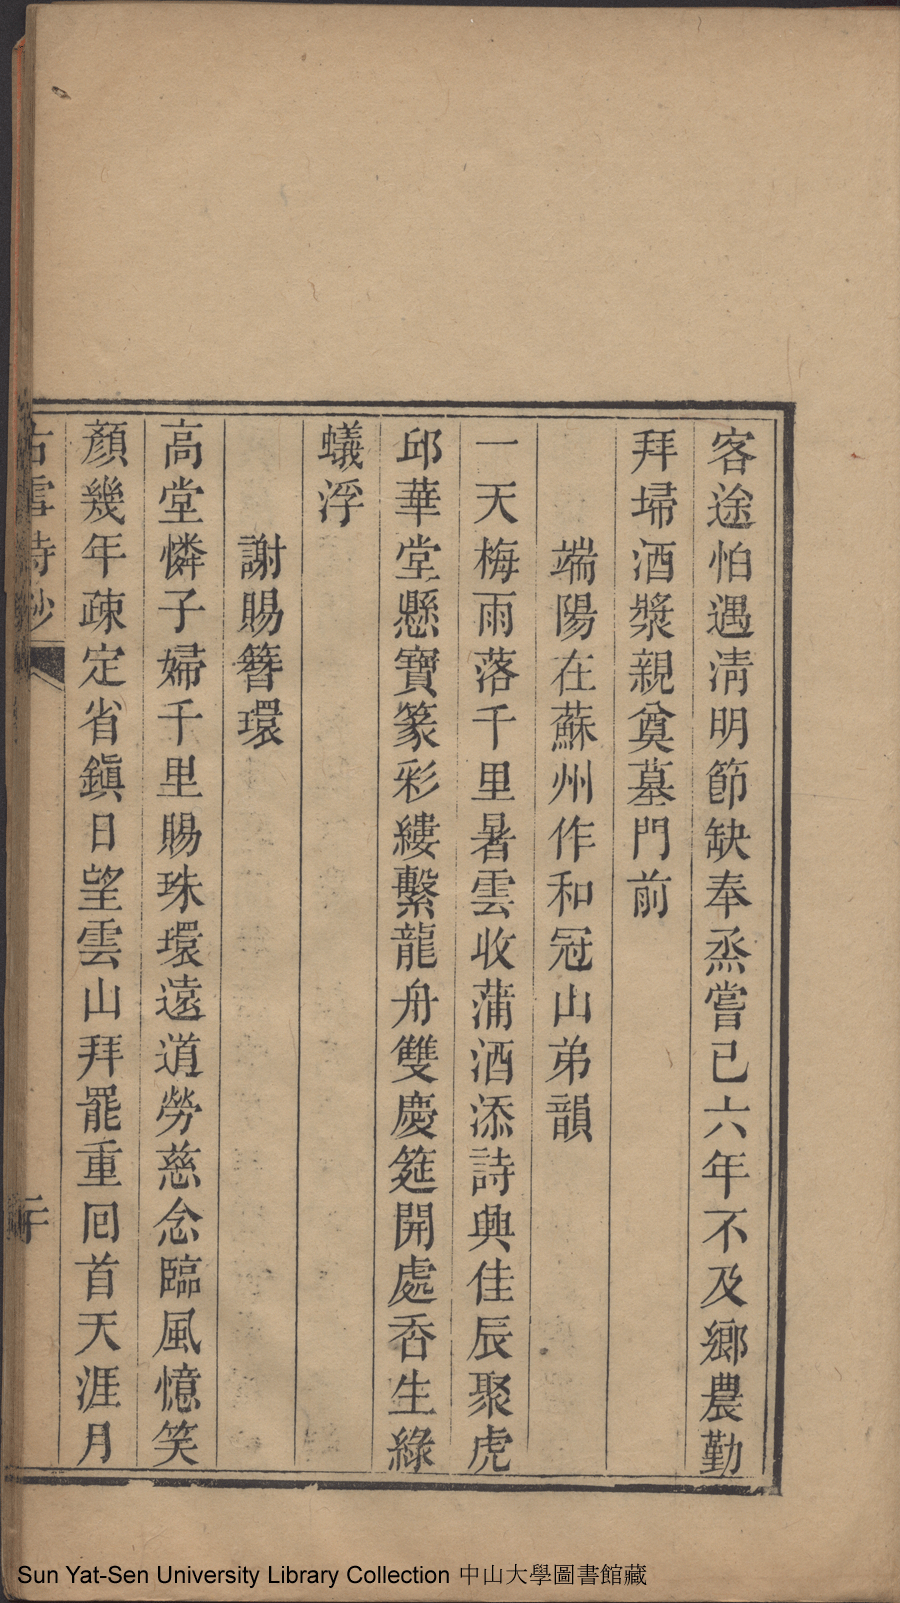 客途怕遇清明節缺奉烝嘗已六年不及鄉農勤
拜埽酒漿親奠墓門前
端陽在蘇州作和冠山弟韻
一天梅雨落千里暑雲收蒲酒添詩興佳辰聚虎
邱華堂懸寶篆彩縷繫龍舟雙慶筵開處香生綠
蟻浮
謝賜簪環
高堂憐子婦千里賜珠環遠道勞慈念臨風憶笑
顏幾年疎定省鎮日望雲山拜罷重囘首天涯月
古雪詩鈔
Sun Yat-Sen University Library Collection 中山大學圖書館藏